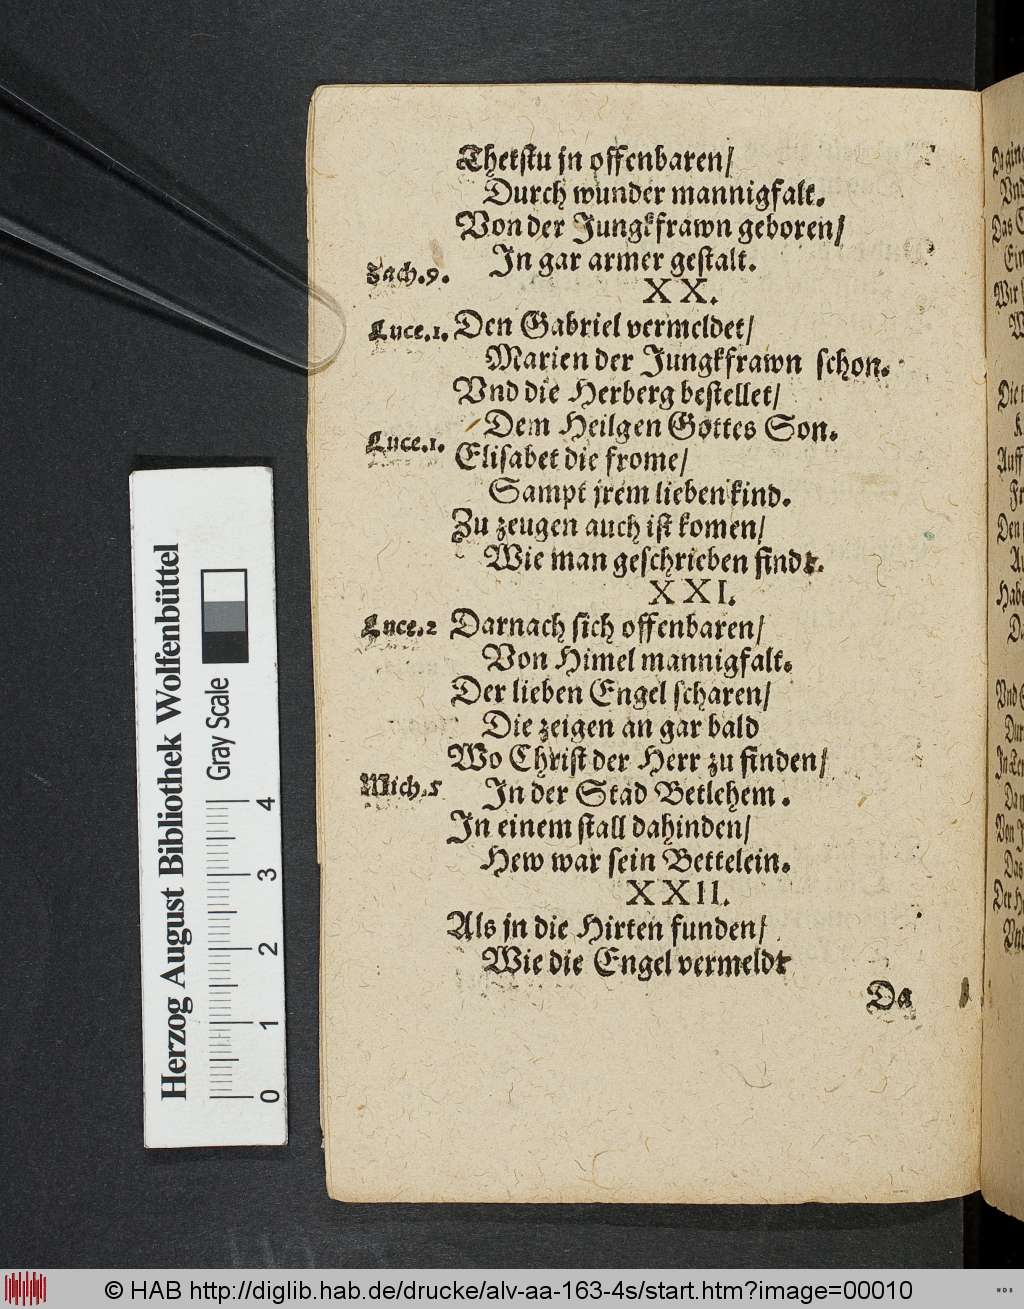 Thetstu jn offenbaren/
Durch wunder mannigfalt.
Von der Jungkfrawn geboren/
Zach.9. In gar armer gestalt.
XX.
Luce.1. Den Gabriel vermeldet/
Marien der Jungkfrawn schon.
Vnd die Herberg bestellet/
Dem Heilgen Gottes Son.
Luce.1. Elisabet die frome/
Sampt jrem lieben kind.
Zu zeugen auch ist komen/
Wie man geschrieben findt.
XXI.
Luce.2 Darnach sich offenbaren/
Von Himel mannigfalt.
Der lieben Engel scharen/
Die zeigen an gar bald
Wo Christ der Herr zu finden/
Mich.5 In der Stad Betlehem.
In einem stall dahinden/
Hew war sein Bettelein.
XXII.
Als jn die Hirten funden/
Wie die Engel vermeldt
Da
Herzog August Bibliothek Wolfenbüttel
Gray Scale
0 1 2 3 4
© HAB http://diglib.hab.de/drucke/alv-aa-163-4s/start.htm?image=00010